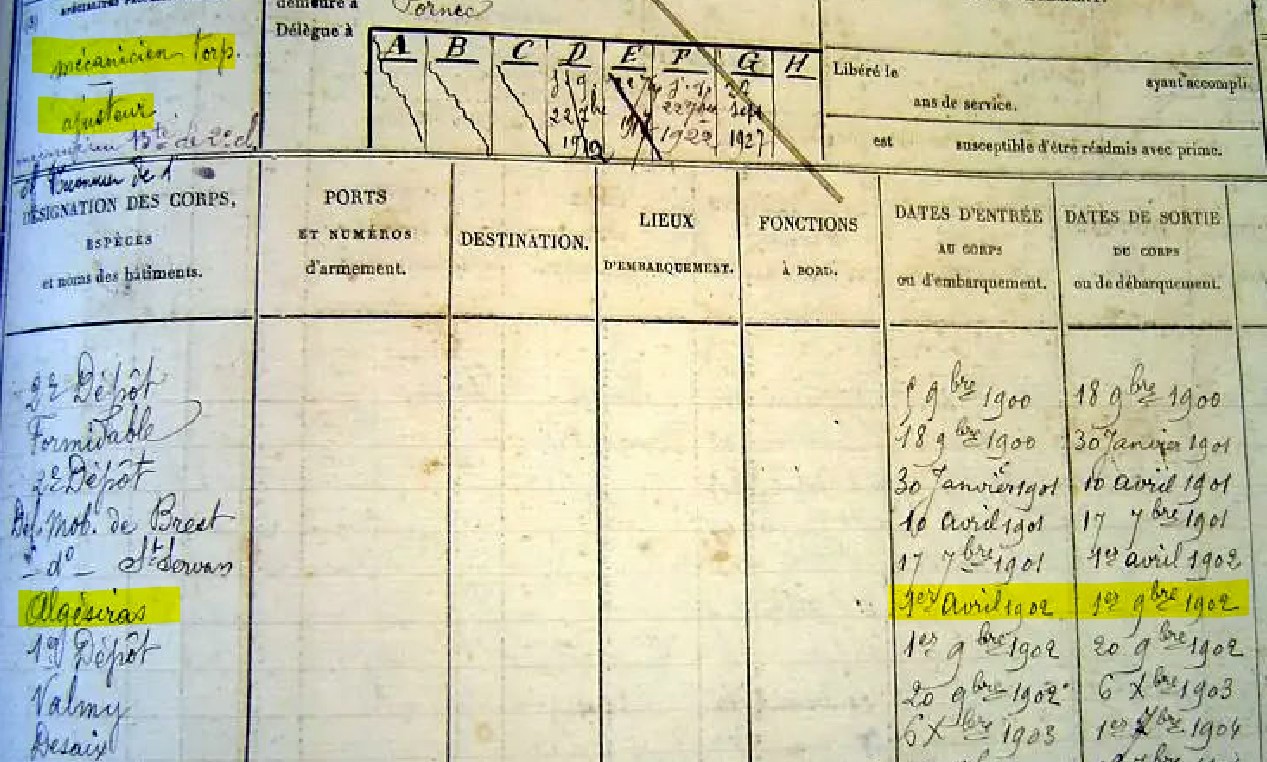 demeure à Pornec
Délègue à
mécanicien torp.
ajusteur
A B C D E F G H
1922 Sept
1927
Libéré le ayant accompli
ans de service.
est susceptible d'être réadmis avec prime.
DÉSIGNATION DES CORPS, ESPÈCES et noms des bâtiments.
PORTS ET NUMÉROS d'armement.
DESTINATION.
LIEUX D'EMBARQUEMENT.
FONCTIONS À BORD.
DATES D'ENTRÉE AU CORPS ou d'embarquement.
DATES DE SORTIE DU CORPS ou de débarquement.
2e Dépôt 9bre 1900 18 9bre 1900
Formidable 18 9bre 1900 30 Janvier 1901
2e Dépôt 30 Janvier 1901 10 avril 1901
Def. Mob. de Brest 10 avril 1901 17 7bre 1901
- do - St Servan 17 7bre 1901 1er avril 1902
Algésiras 1er Avril 1902 1er 9bre 1902
1er Dépôt 1er 9bre 1902 20 9bre 1902
Valmy 20 9bre 1902 6 Xbre 1903
Desaix 6 Xbre 1903 1er 7bre 1904